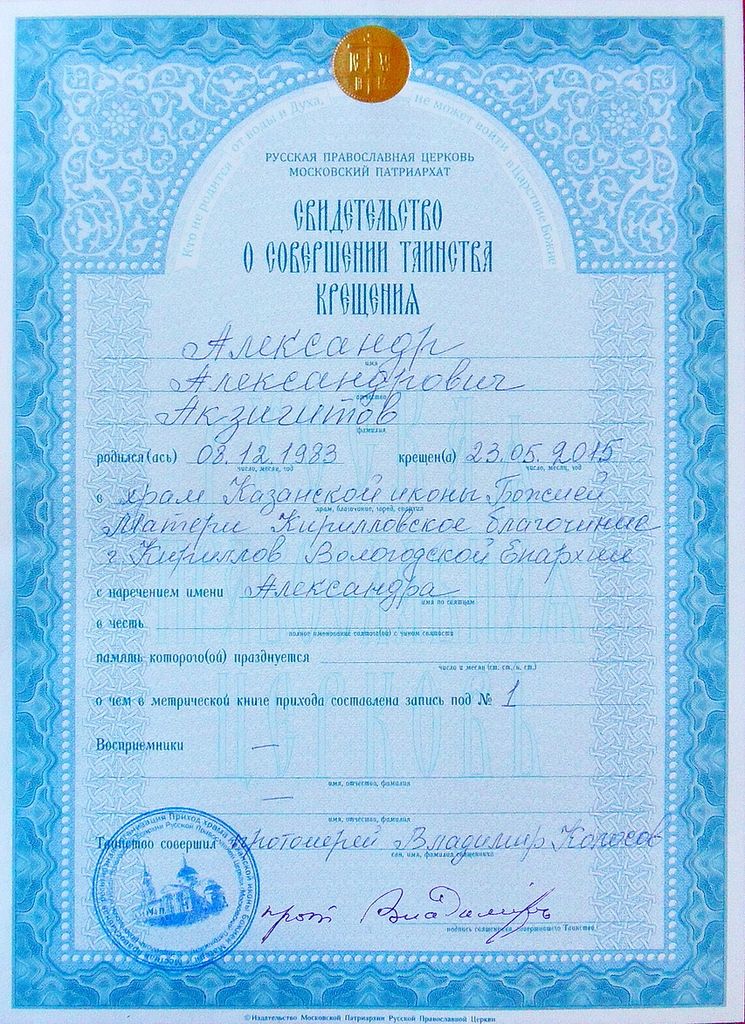 Кто не родится от воды и Духа, не может войти в Царствие Божие
РУССКАЯ ПРАВОСЛАВНАЯ ЦЕРКОВЬ
МОСКОВСКИЙ ПАТРИАРХАТ
СВИДЕТЕЛЬСТВО
О СОВЕРШЕНИИ ТАИНСТВА
КРЕЩЕНИЯ
Александр
имя
Александрович
отчество
Акзигитов
фамилия
родился(ась) 08.12.1983 крещен(а) 23.05.2015
число, месяц, год число, месяц, год
в храм Казанской иконы Божией
храм, благочиние, город, епархия
Матери Кирилловское благочиние
г. Кириллов Вологодской Епархии
с наречением имени Александра
имя по святцам
в честь
полное именование святого(ой) с чином святости
память которого(ой) празднуется
число и месяц (ст. ст./н. ст.)
о чем в метрической книге прихода составлена запись под № 1
Восприемники —
имя, отчество, фамилия
—
имя, отчество, фамилия
Таинство совершил протоиерей Владимир Колосов
сан, имя, фамилия священника
прот Владимиръ
подпись священника, совершившего Таинство
© Издательство Московской Патриархии Русской Православной Церкви